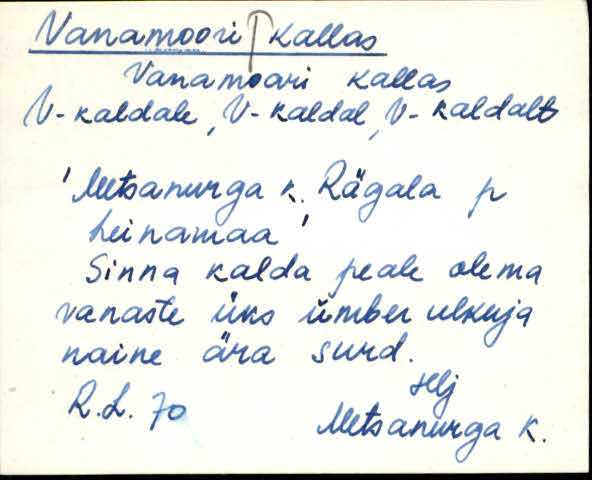 Vanamoori kallas
Vanamoori kallas
V-kaldale, V-kaldal, V-kaldalt
'Metsanurga k. Rägala p
heinamaa'
Sinna kalda peale olema
vanaste üks ümber ulkuja
naine ära surd.
Hlj
R.L. 70
Metsanurga k.